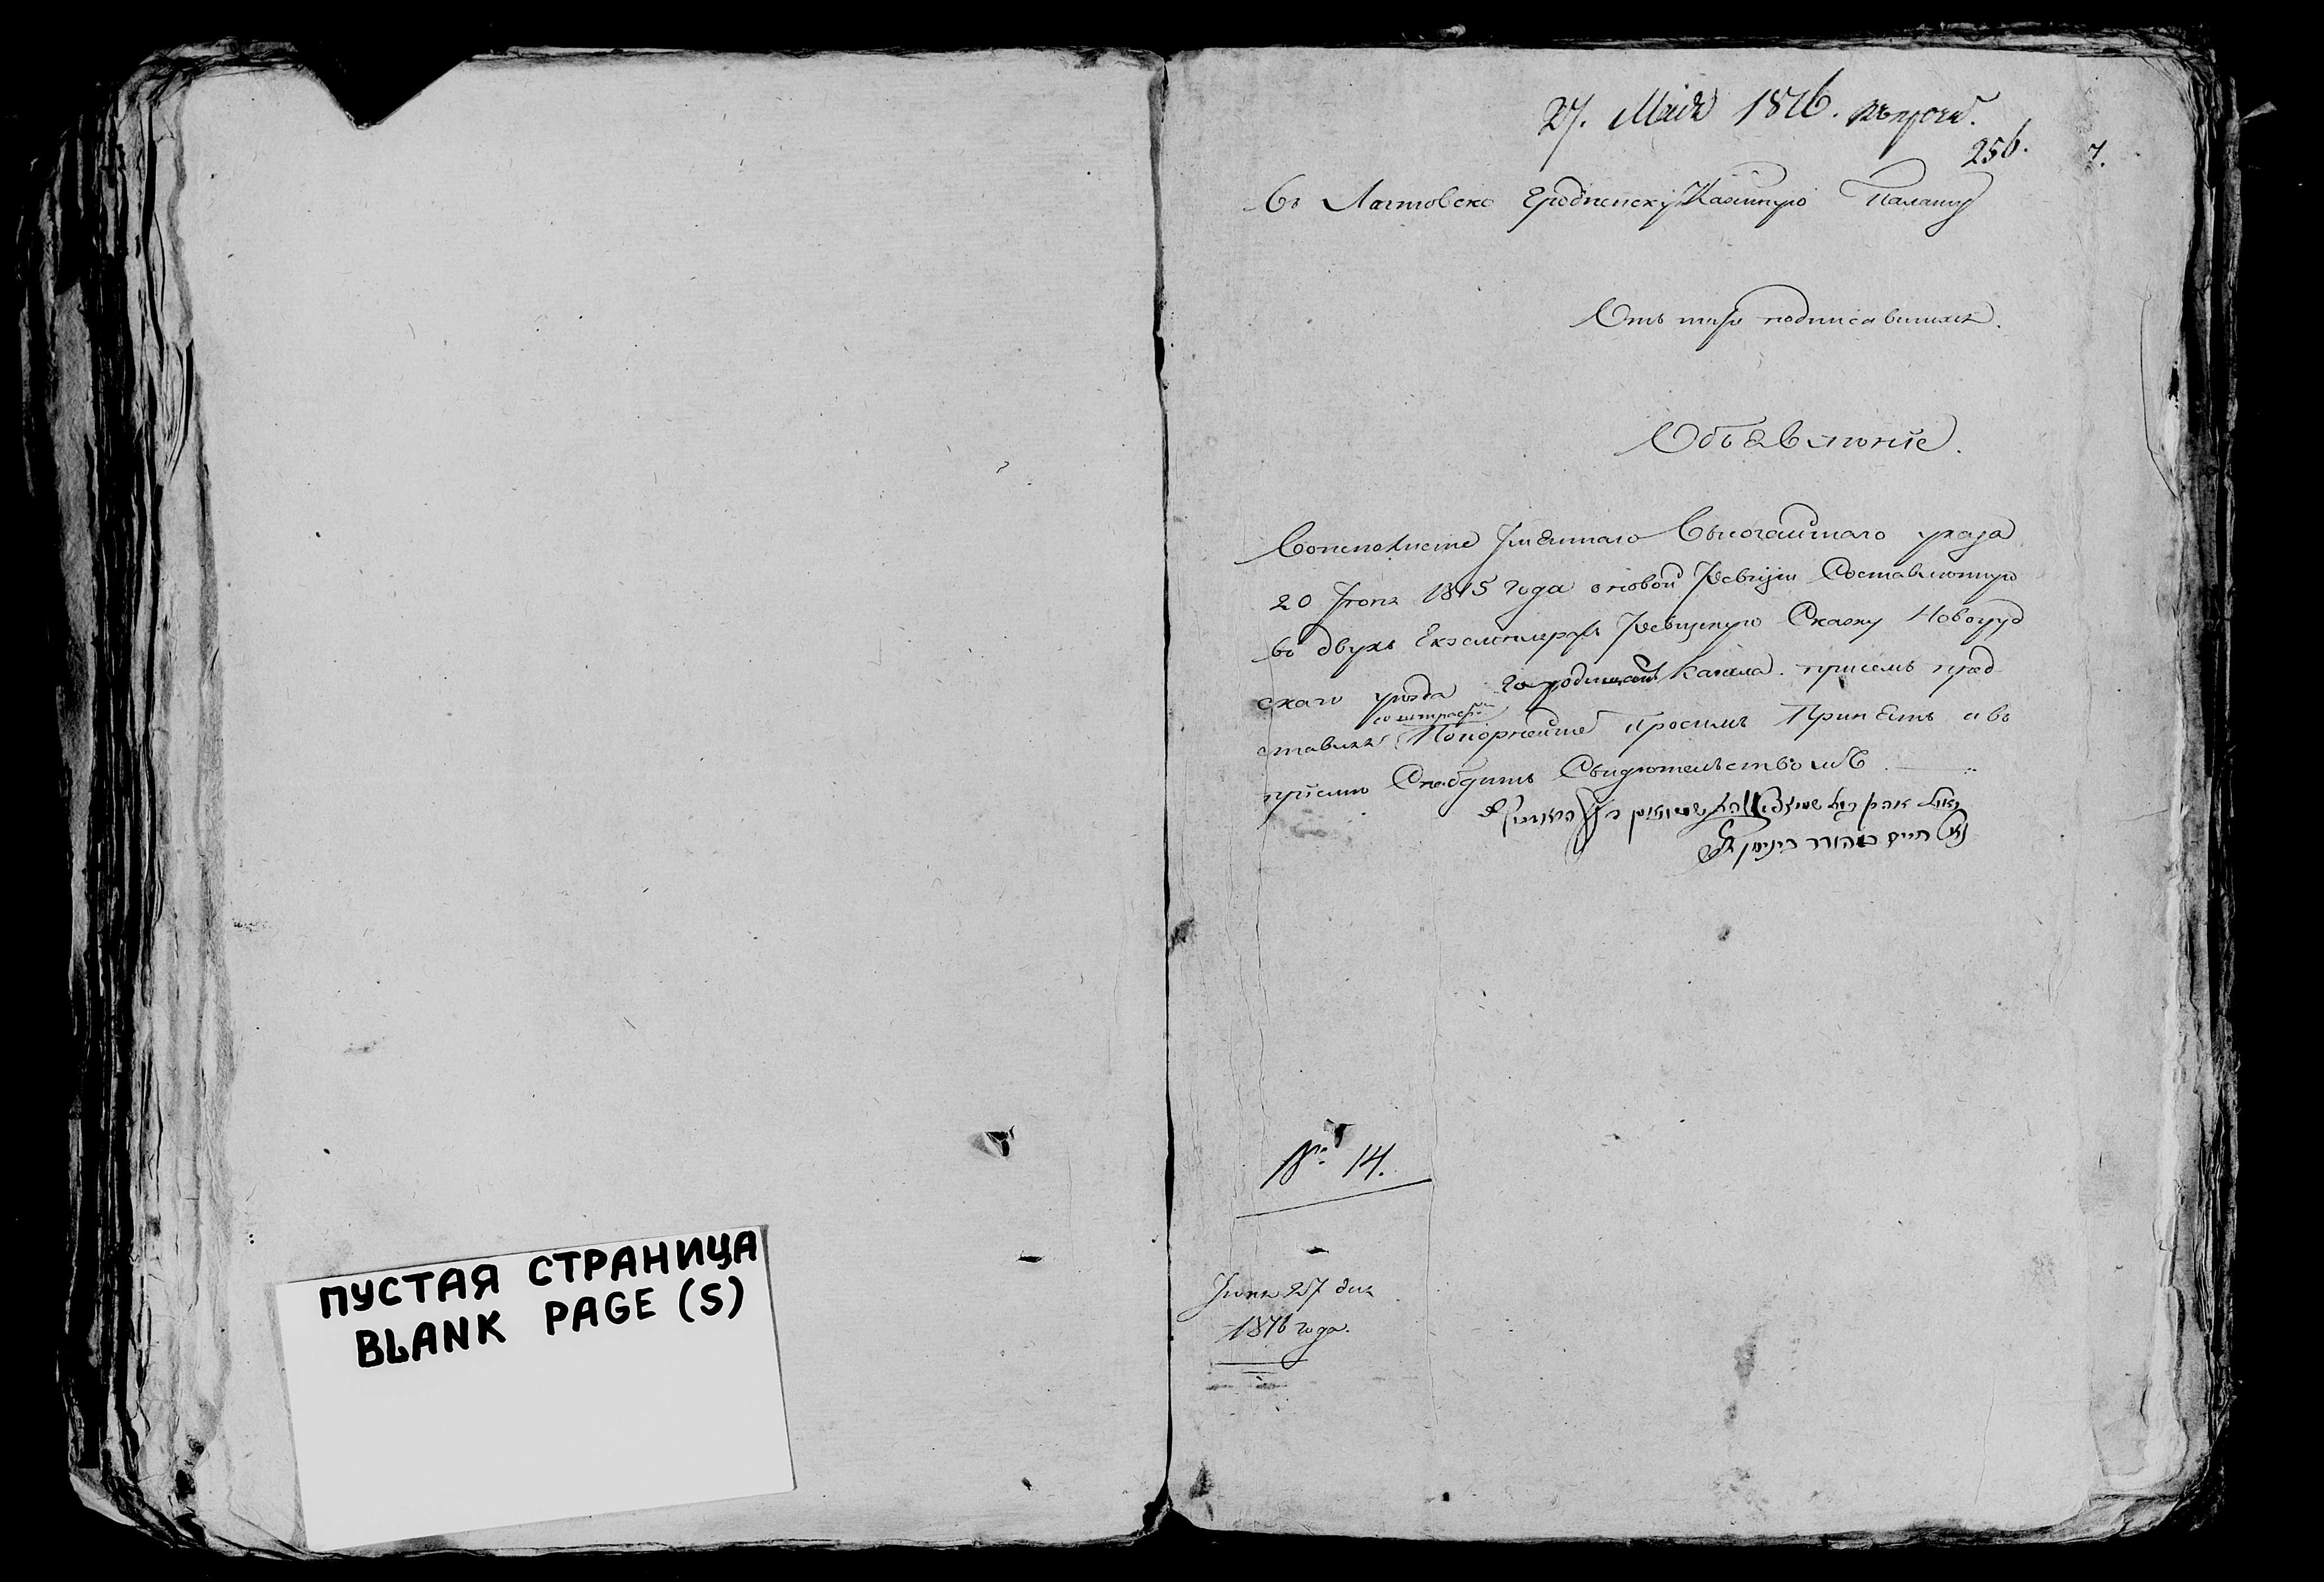 ПУСТАЯ СТРАНИЦА
BLANK PAGE (S)
27. Маiя 1816.
256.
7.
Въ Литовско Гродненску Казенную Палату
Отъ ниже подписавшихся.
Объявленіе.
Имяннаго Высочайшаго указа
20 Іюня 1815 года о новой Ревизіи Составленную
въ двухъ Екземплярахъ Ревизкую Скаску Новогруд
скаго уезда Кагала. присемъ пред
ставляя Покорнейше просимъ Принять и въ
пріемѣ Снабдить Свидетельствомъ
№ 14.
27 дня
1816 года.